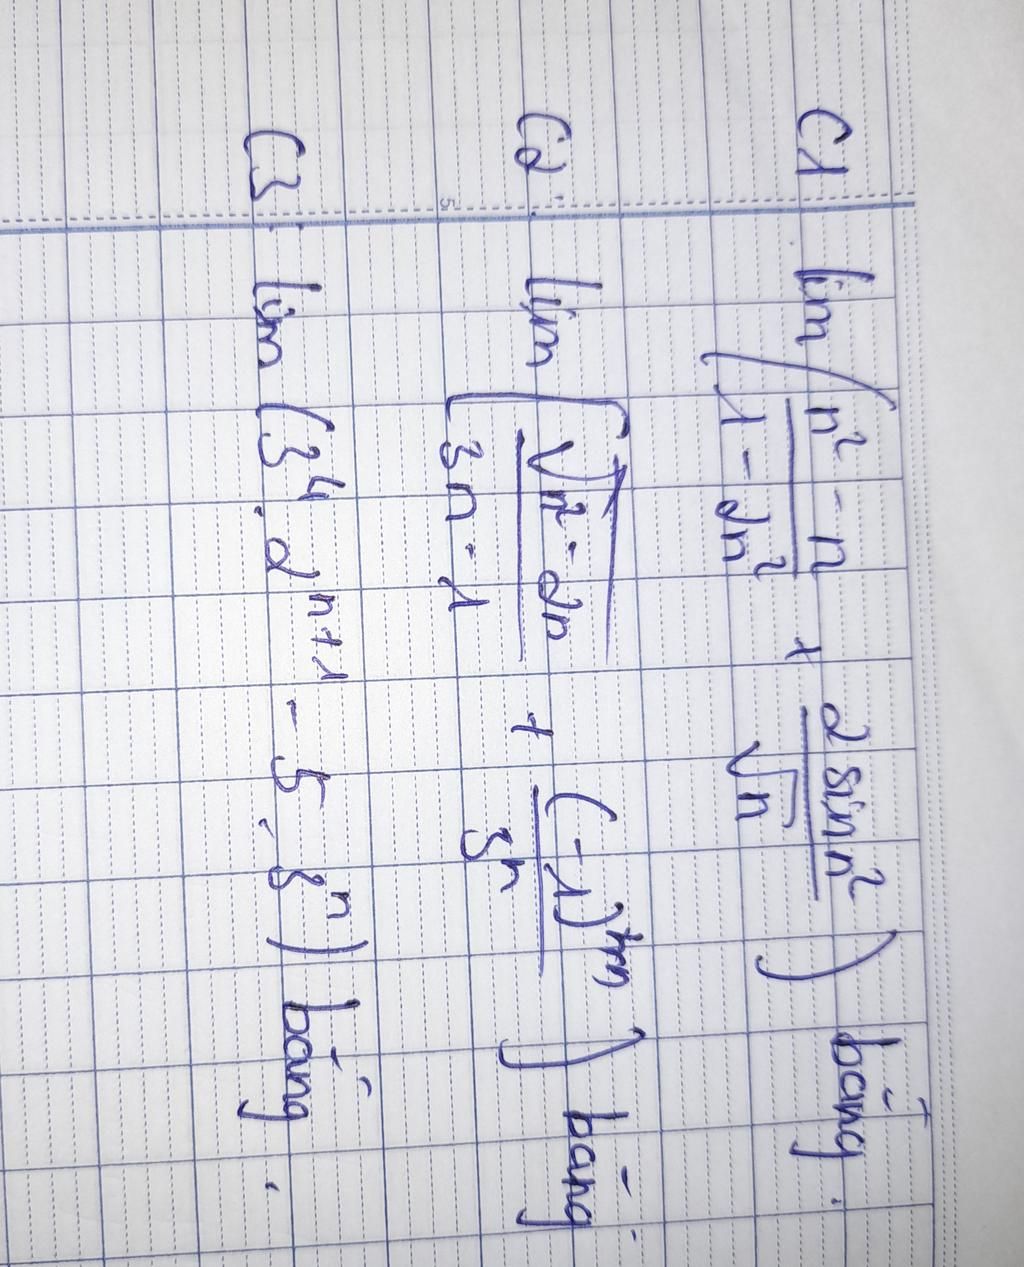 C1 lim ( (n² - n)/(1 - 2n²) + (2 sin n²)/√n ) bằng.
C2: lim [ √(n² - 2n)/(3n - 1) + (-1)ⁿ/3ⁿ ) bằng.
C3: lim (3⁴ . 2ⁿ⁺¹ - 5 . 3ⁿ) bằng.
5